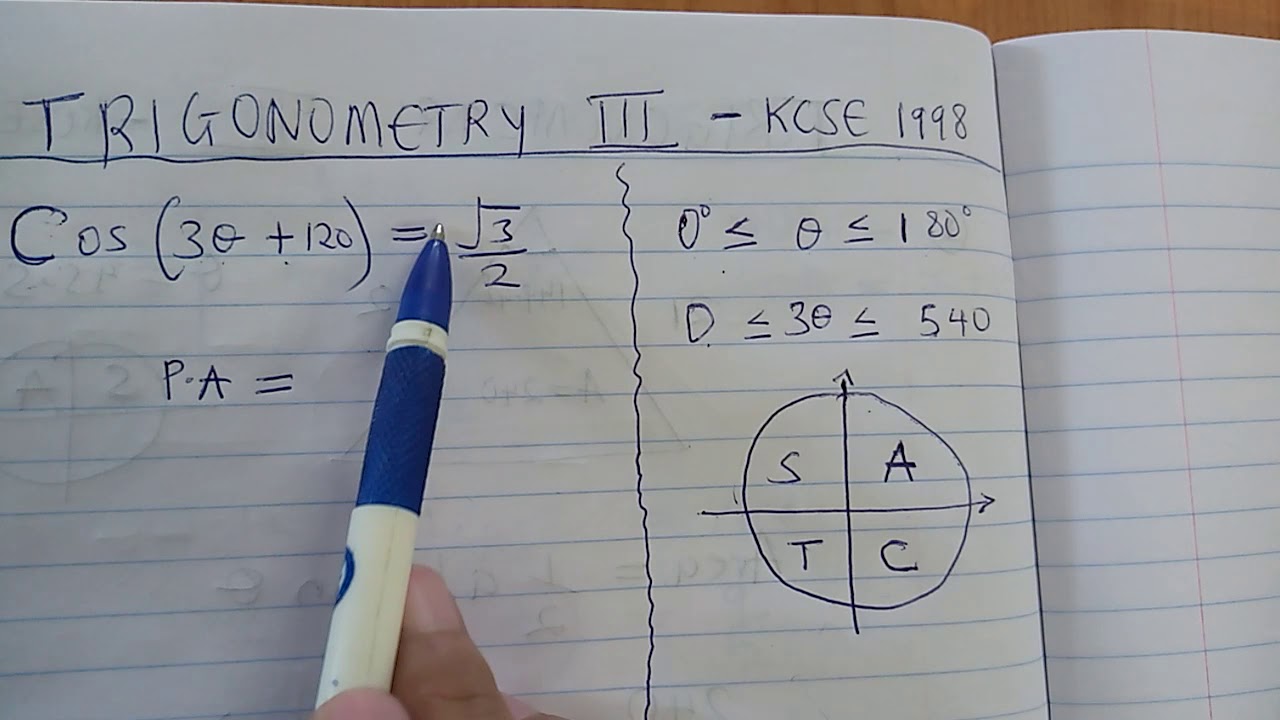 TRIGONOMETRY III - KCSE 1998
Cos (3θ + 120) = √3/2
P.A =
0° ≤ θ ≤ 180°
0 ≤ 3θ ≤ 540
S A
T C